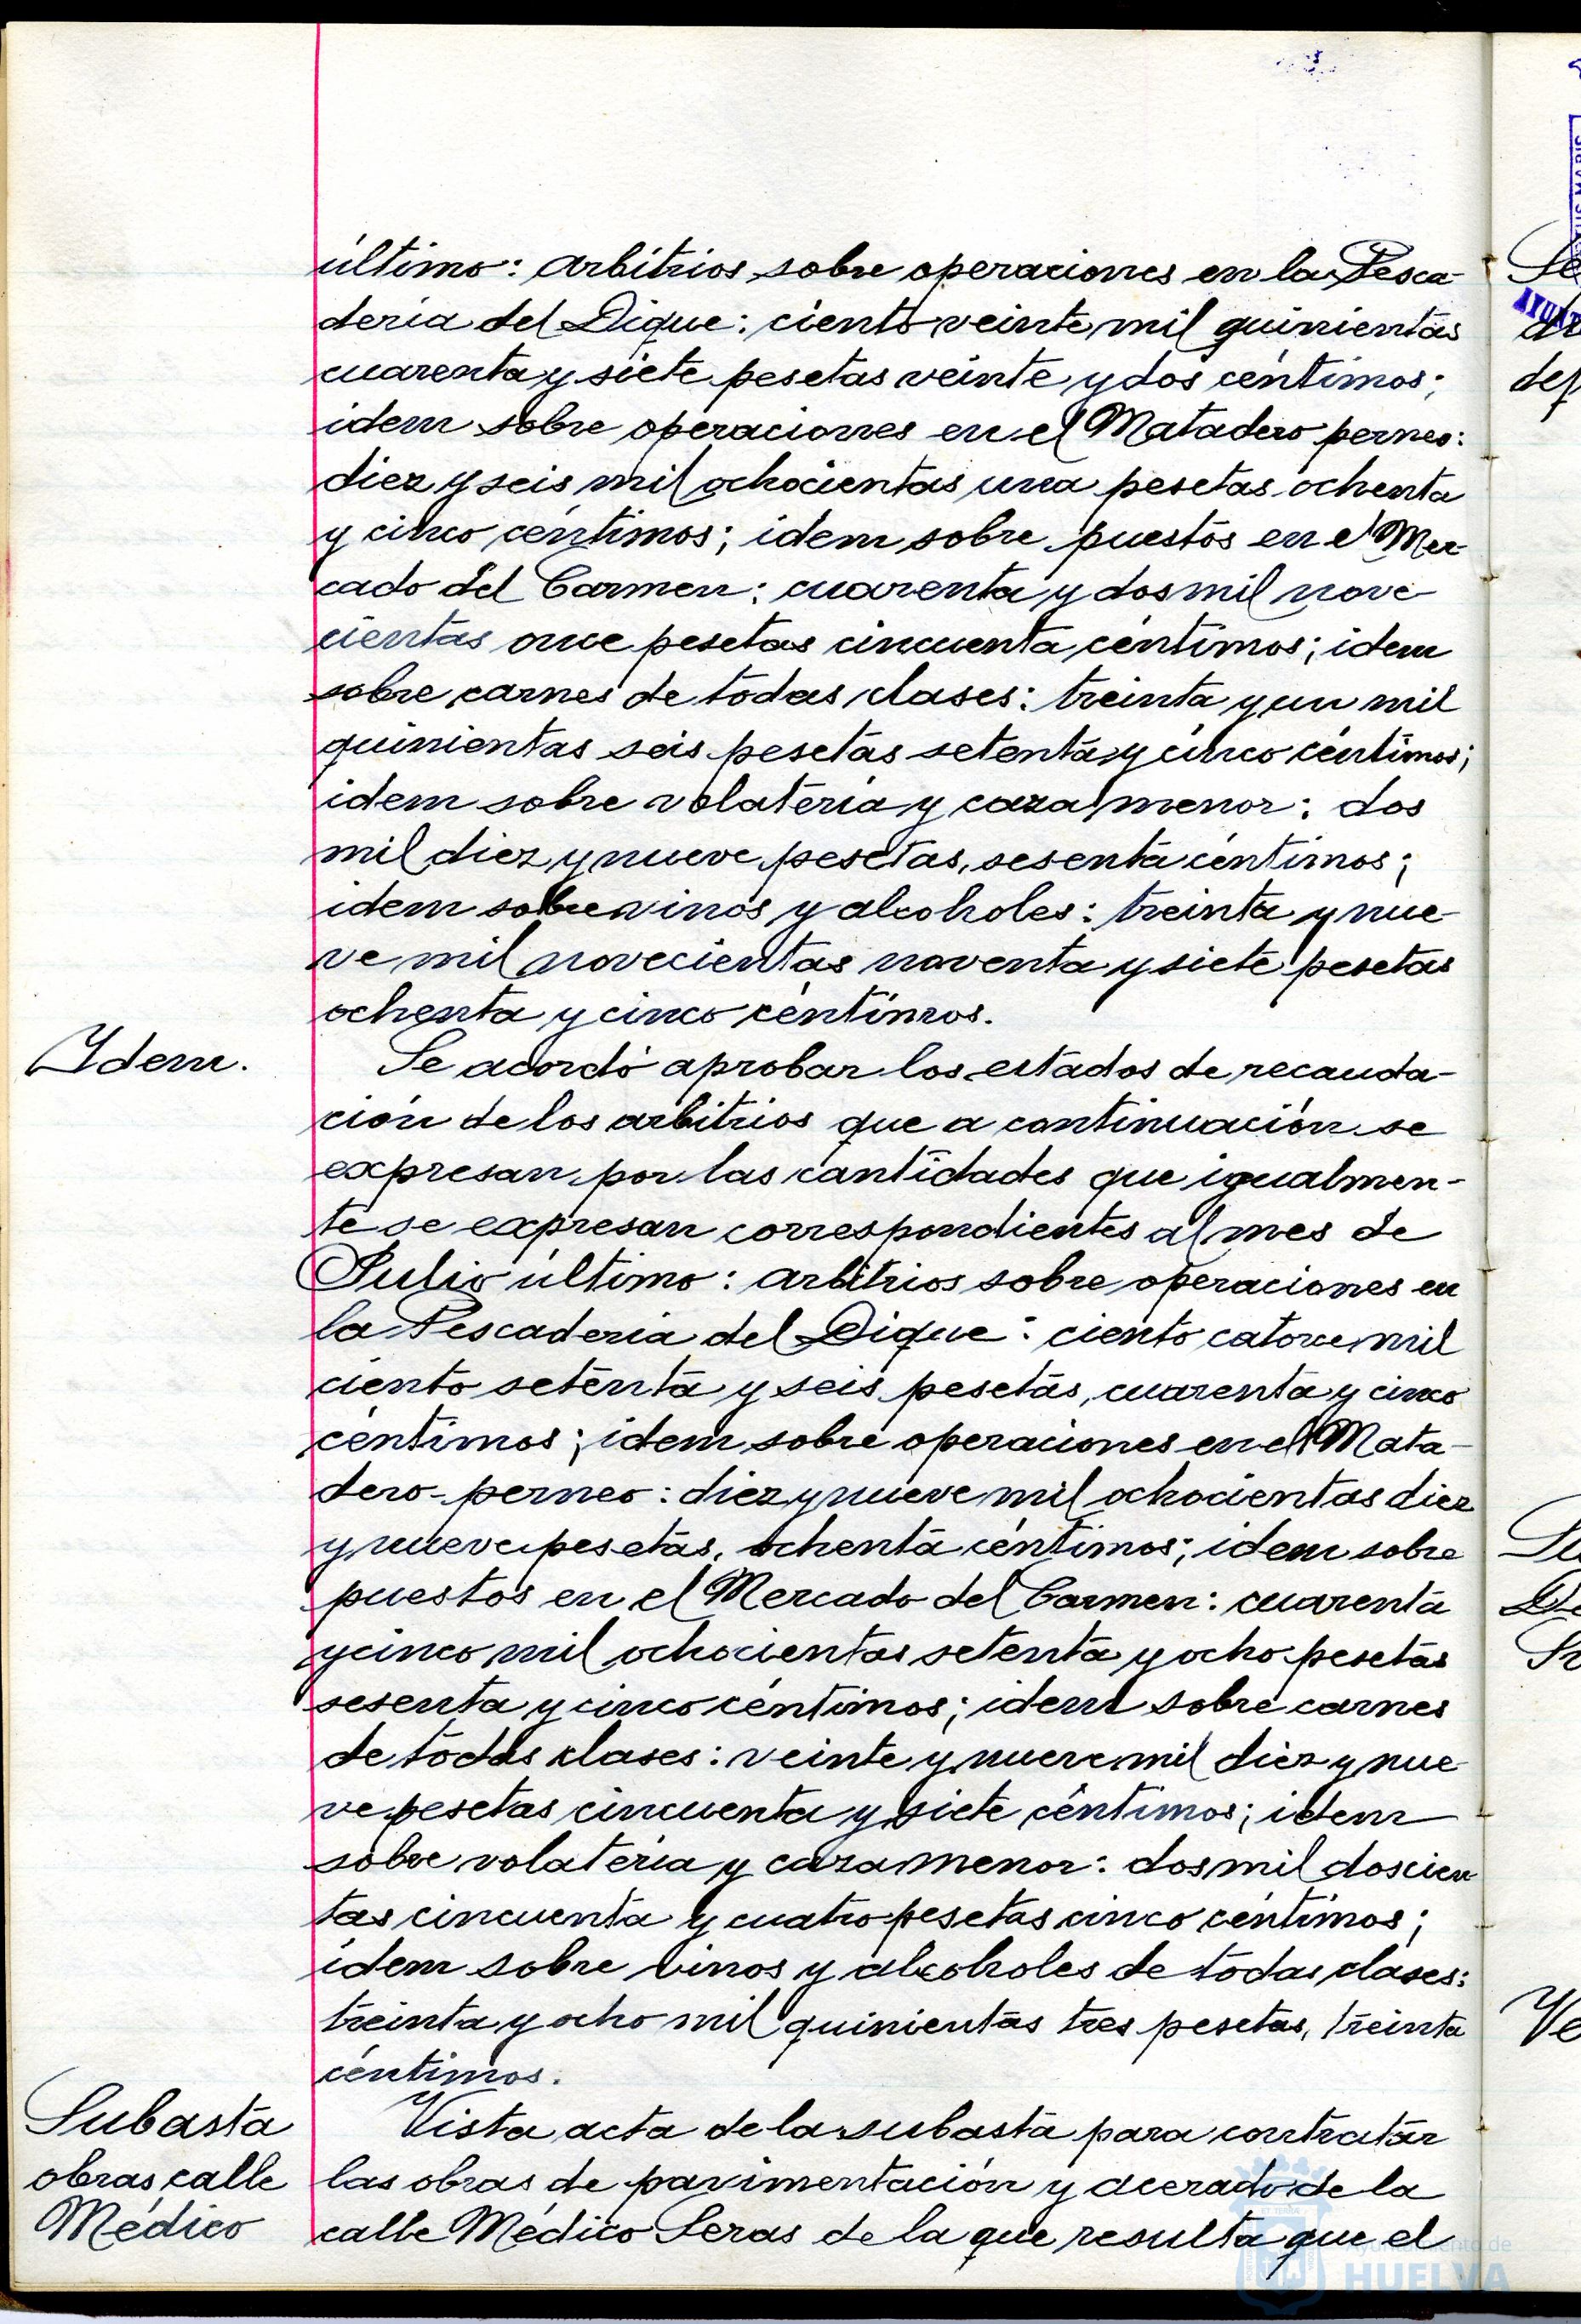 último: arbitrios sobre operaciones en la Pesca-
deria del Dique: ciento veinte mil quinientas
cuarenta y siete pesetas veinte y dos céntimos;
idem sobre operaciones en el Matadero perneo:
diez y seis mil ochocientas una pesetas ochenta
y cinco céntimos; idem sobre puestos en el Mer-
cado del Carmen: cuarenta y dos mil nove-
cientas once pesetas cincuenta céntimos; idem
sobre carnes de todas clases: treinta y un mil
quinientas seis pesetas setenta y cinco céntimos;
idem sobre volateria y caza menor: dos
mil diez y nueve pesetas, sesenta céntimos;
idem sobre vinos y alcoholes: treinta y nue-
ve mil novecientas noventa y siete pesetas
ochenta y cinco céntimos.
Idem.
Se acordó aprobar los estados de recauda-
ción de los arbitrios que a continuación se
expresan por las cantidades que igualmen-
te se expresan correspondientes al mes de
Julio último: arbitrios sobre operaciones en
la Pescaderia del Dique: ciento catorce mil
ciento setenta y seis pesetas, cuarenta y cinco
céntimos; idem sobre operaciones en el Mata-
dero-perneo: diez y nueve mil ochocientas diez
y nueve pesetas, ochenta céntimos; idem sobre
puestos en el Mercado del Carmen: cuarenta
y cinco mil ochocientas setenta y ocho pesetas
sesenta y cinco céntimos; idem sobre carnes
de todas clases: veinte y nueve mil diez y nue-
ve pesetas cincuenta y siete céntimos; idem
sobre volateria y caza menor: dos mil doscien-
tas cincuenta y cuatro pesetas cinco céntimos;
idem sobre vinos y alcoholes de todas clases:
treinta y ocho mil quinientas tres pesetas, treinta
céntimos.
Subasta
obras calle
Médico
Vista acta de la subasta para contratar
las obras de pavimentación y acerado de la
calle Médico Seras de la que resulta que el
Ayuntamiento de
HUELVA